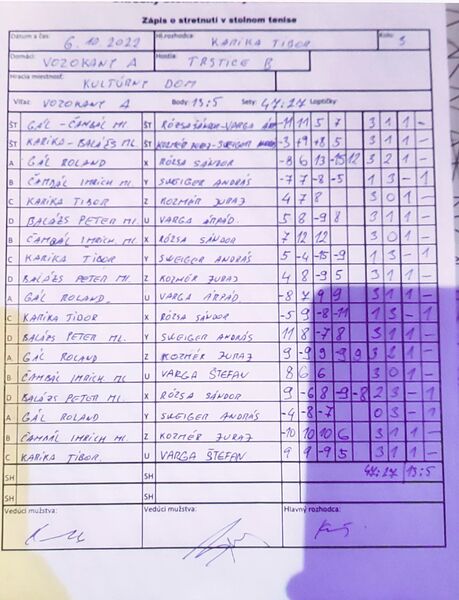 Zápis o stretnutí v stolnom tenise
Dátum a čas: 6.10.2022 Hl.rozhodca KARIKA TIBOR Kolo: 3
Domáci: VOZOKANY A Hostia: TRSTICE B
Hracia miestnosť: KULTÚRNY DOM
Víťaz: VOZOKANY A Body: 13:5 Sety: 47:27 Loptičky:
ŠT GÁL - ČAMBÁL ML. ŠT RÓZSA SÁNDOR-VARGA -11 11 5 7 3 1 1 -
ŠT KARIKA - BALÁZS ML. ŠT KOZMÉR JURAJ-SWEIGER -3 +9 +8 5 3 1 1 -
A GÁL ROLAND X RÓZSA SÁNDOR -8 6 13 -15 12 3 2 1 -
B ČAMBÁL IMRICH ML. Y SWEIGER ANDRÁS -7 7 -8 -5 1 3 - 1
C KARIKA TIBOR Z KOZMÉR JURAJ 4 7 8 3 0 1 -
D BALÁZS PETER ML. U VARGA ÁRPÁD 5 8 -9 8 3 1 1 -
B ČAMBÁL IMRICH ML. X RÓZSA SÁNDOR 7 12 12 3 0 1 -
C KARIKA TIBOR Y SWEIGER ANDRÁS 5 -4 -15 -9 1 3 - 1
D BALÁZS PETER ML. Z KOZMÉR JURAJ 4 8 -9 5 3 1 1 -
A GÁL ROLAND U VARGA ÁRPÁD -8 7 9 9 3 1 1 -
C KARIKA TIBOR X RÓZSA SÁNDOR -5 9 -8 -11 1 3 - 1
D BALÁZS PETER ML. Y SWEIGER ANDRÁS 11 8 -7 8 3 1 1 -
A GÁL ROLAND Z KOZMÉR JURAJ 9 -9 -9 9 9 3 2 1 -
B ČAMBÁL IMRICH ML. U VARGA ŠTEFAN 8 6 6 3 0 1 -
D BALÁZS PETER ML. X RÓZSA SÁNDOR 9 -6 8 -9 -8 2 3 - 1
A GÁL ROLAND Y SWEIGER ANDRÁS -4 -8 -7 0 3 - 1
B ČAMBÁL IMRICH ML. Z KOZMÉR JURAJ -10 10 10 6 3 1 1 -
C KARIKA TIBOR U VARGA ŠTEFAN 9 9 -9 5 3 1 1 -
SH SH 47:27 13:5
SH SH
Vedúci mužstva: Vedúci mužstva: Hlavný rozhodca: